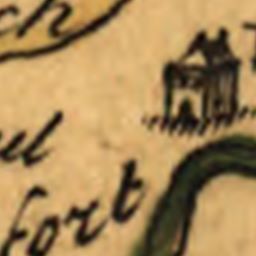 ch
ul
fort